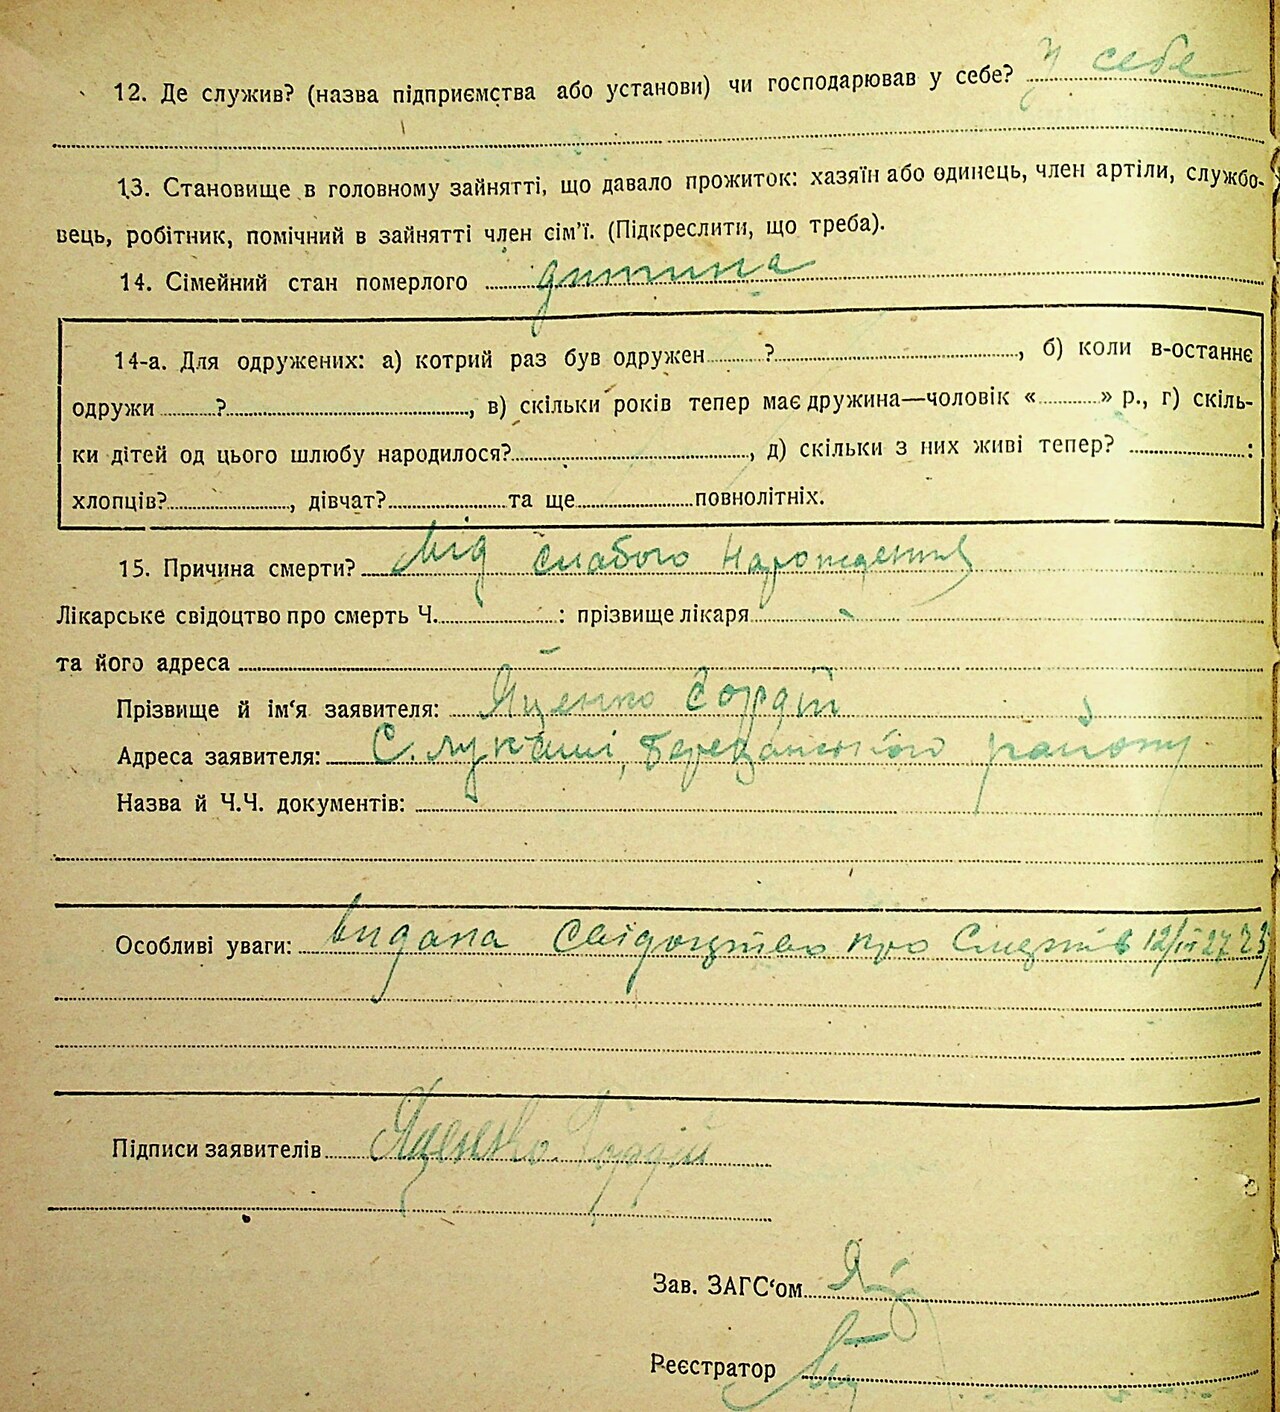 12. Де служив? (назва підприємства або установи) чи господарював у себе? у себе
13. Становище в головному зайнятті, що давало прожиток: хазяїн або одинець, член артіли, службо-
вець, робітник, помічний в зайнятті член сім'ї. (Підкреслити, що треба).
14. Сімейний стан померлого дитина
14-а. Для одружених: а) котрий раз був одружен ? , б) коли в-останнє
одружи ? , в) скільки років тепер має дружина—чоловік « » р., г) скіль-
ки дітей од цього шлюбу народилося? , д) скільки з них живі тепер? :
хлопців? , дівчат? та ще повнолітніх.
15. Причина смерти? Від слабого нарождення
Лікарське свідоцтво про смерть Ч. : прізвище лікаря
та його адреса
Прізвище й ім'я заявителя: Яценко Гордій
Адреса заявителя: С. Лукаші, Березанського району
Назва й Ч.Ч. документів:
Особливі уваги: видана свідоцтво про смерть 12/
Підписи заявителів Яценко Гордій
Зав. ЗАГС'ом
Реєстратор